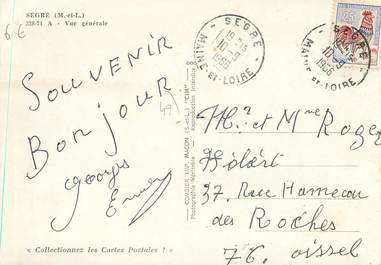 SEGRÉ (M.-et-L.)
328-71 A - Vue générale
6€
SOUVENIR
Bonjour
Georges
49
« Collectionnez les Cartes Postales ! »
COMBIER IMP. MACON (S.-et-L.) "CIM"
Photographie Véritable - Reproduction Interdite
SEGRÉ
19H15
10-9
1966
MAINE-ET-LOIRE
SEGRÉ
10-9
1966
MAINE-ET-LOIRE
25
Mr et Mme Roger
37. Rue Hameau
des Roches
76. Oissel